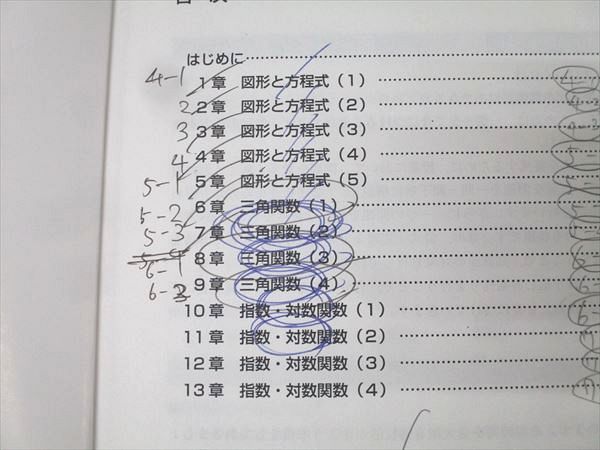 目 次
はじめに
4-1
1章 図形と方程式(1)
2 2章 図形と方程式(2)
3 3章 図形と方程式(3)
4 4章 図形と方程式(4)
5-1 5章 図形と方程式(5)
5-2 6章 三角関数(1)
5-3 7章 三角関数(2)
8章 三角関数(3)
6-1
9章 三角関数(4)
10章 指数・対数関数(1)
11章 指数・対数関数(2)
12章 指数・対数関数(3)
13章 指数・対数関数(4)